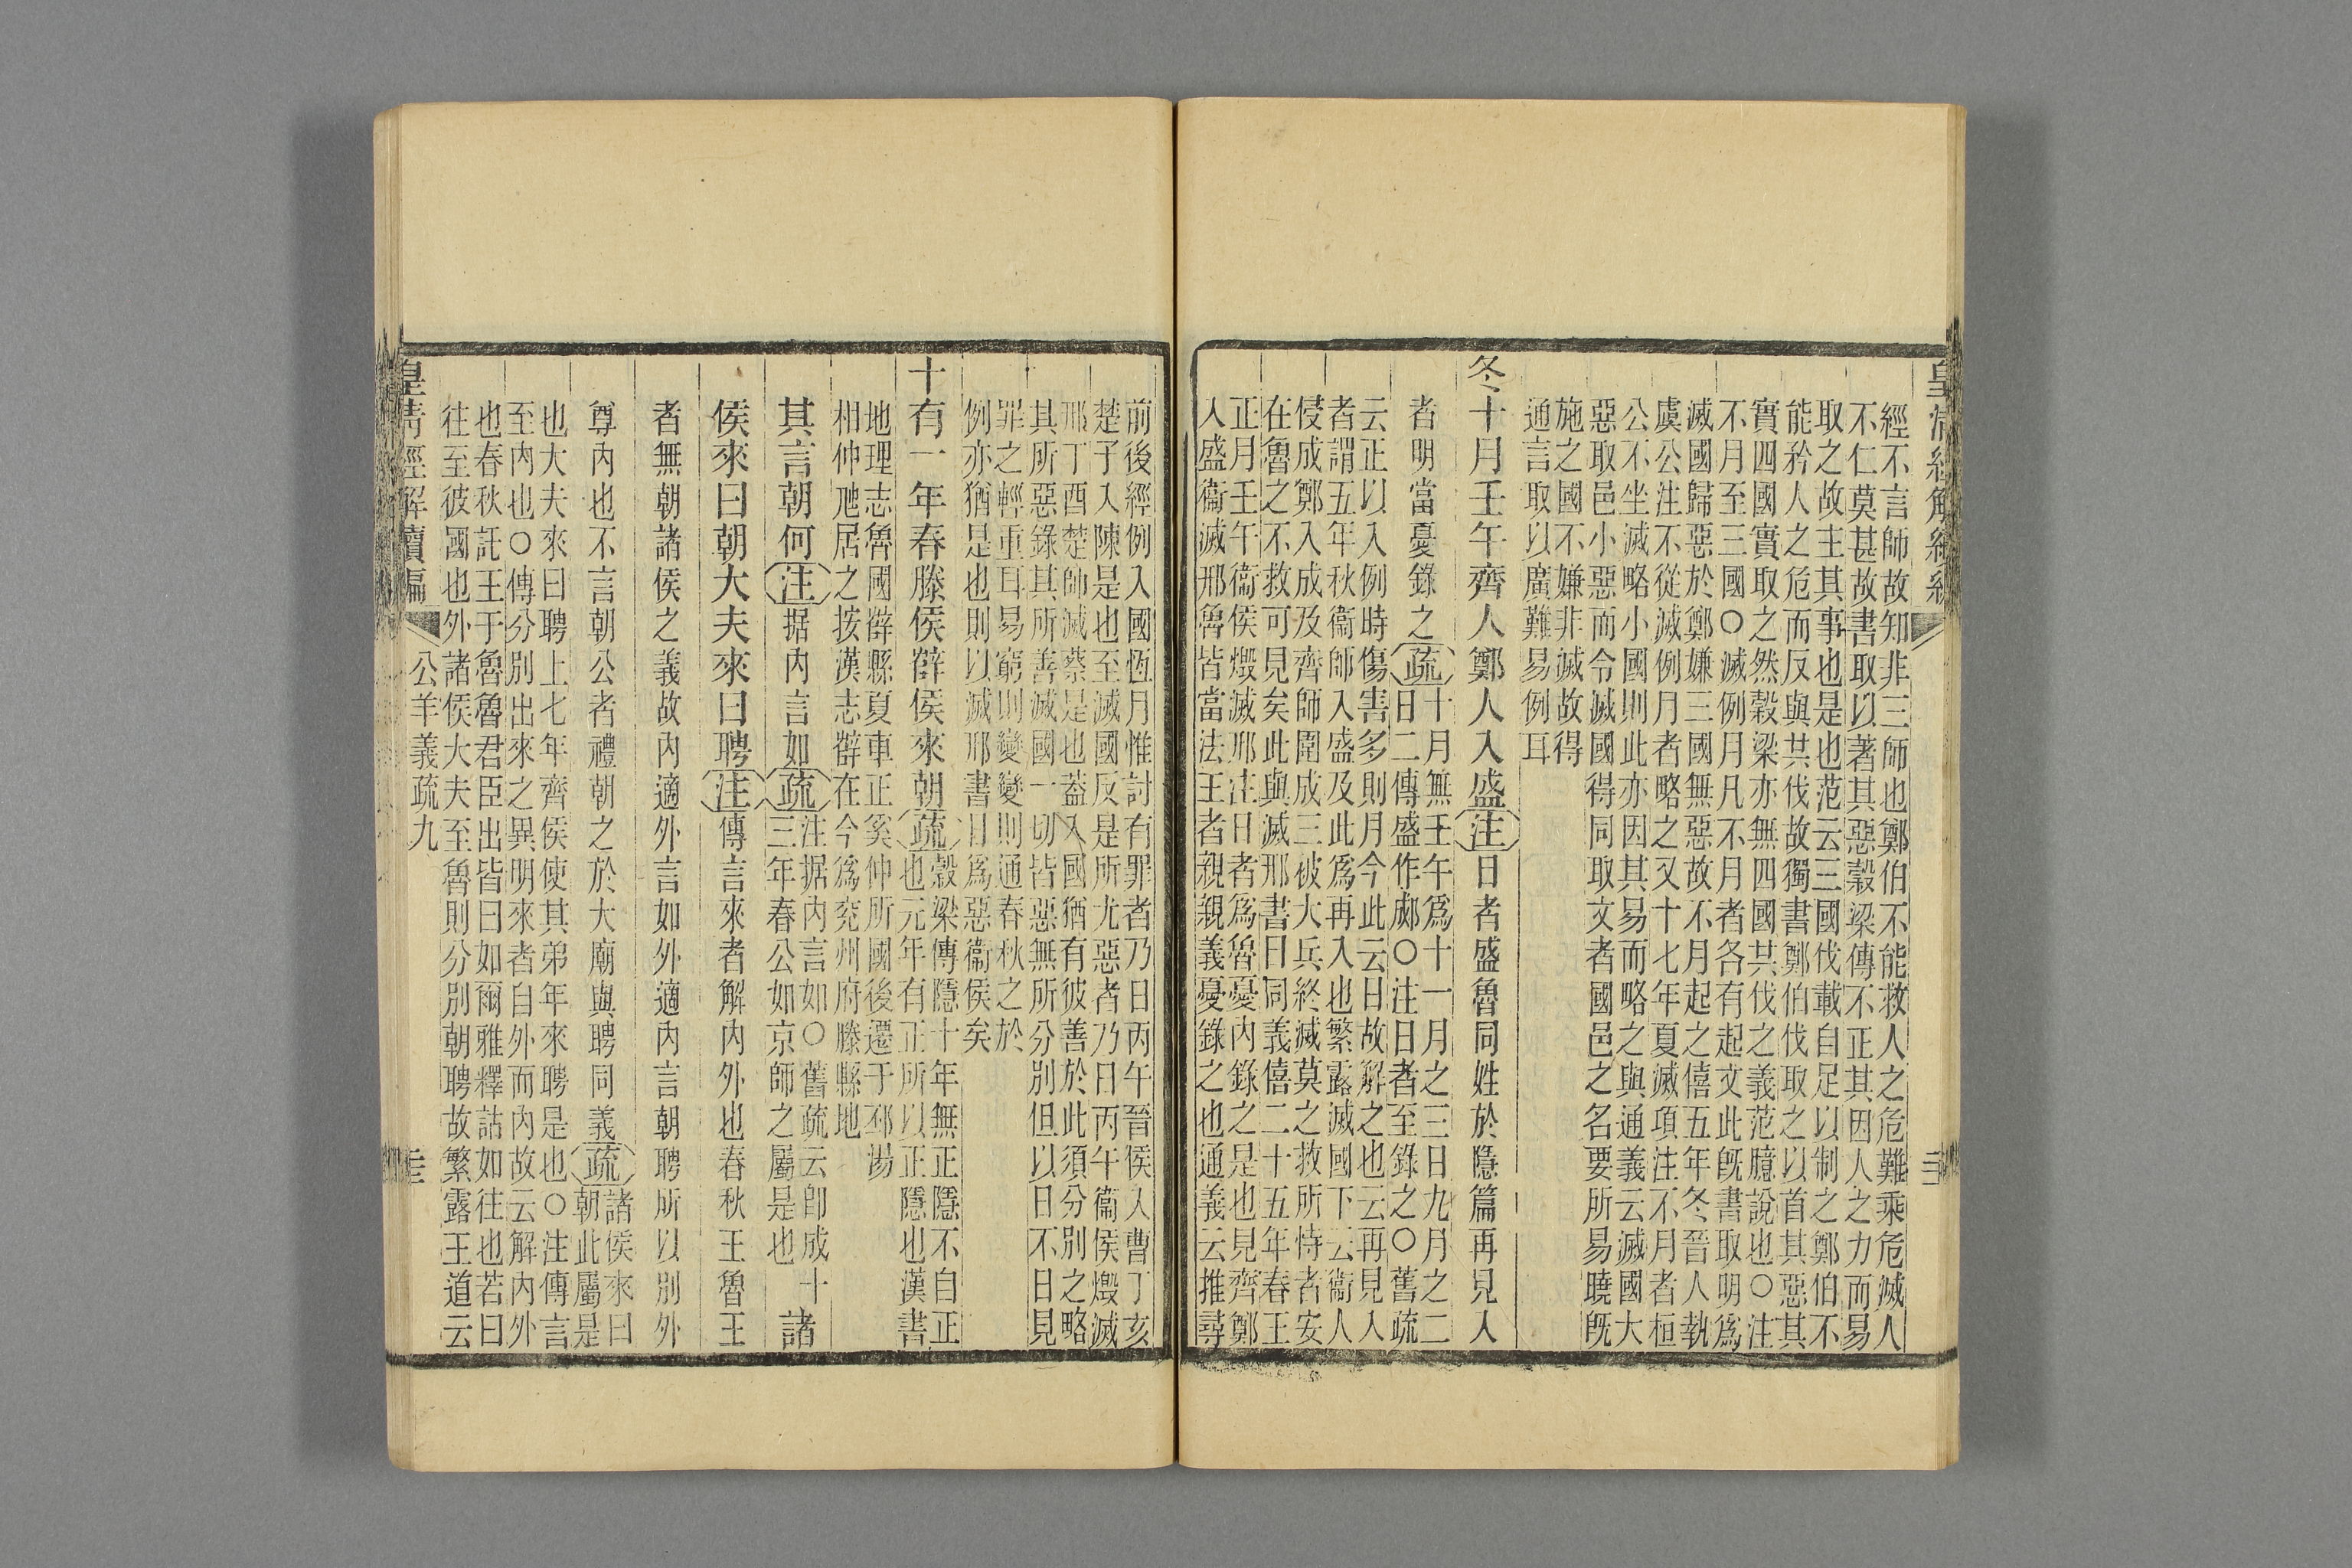 經不言師故知非三師也鄭伯不能救人之危難乘危滅人
不仁莫甚故書取以著其惡穀梁傳不正其因人之力而易
取之故主其事也是也范云三國伐載自足以制之鄭伯不
能矜人之危而反與共伐故獨書鄭伯伐取之以首其惡其
實四國實取之然穀梁亦無四國共伐之義范臆說也○注
不月至三國○滅例月凡不月者各有起文此旣書取明爲
滅國歸惡於鄭嫌三國無惡故不月起之僖五年冬晉人執
虞公注不從滅例月者略之又十七年夏滅項注不月者桓
公不坐滅略小國則此亦因其易而略之與通義云滅國大
惡取邑小惡而令滅國得同取文者國邑之名要所易曉旣
施之國不嫌非滅故得
通言取以廣難易例耳
冬十月壬午齊人鄭人入盛注日者盛魯同姓於隱篇再見入
者明當憂錄之疏十月無壬午爲十一月之三日九月之二
日二傳盛作郕○注日者至錄之○舊疏
云正以入例時傷害多則月今此云日故解之也云再見入
者謂五年秋衞師入盛及此爲再入也繁露滅國下云衞人
侵成鄭入成及齊師圍成三被大兵終滅莫之救所恃者安
在魯之不救可見矣此與滅邢書日同義僖二十五年春王
正月壬午衞侯燬滅邢注日者爲魯憂內錄之是也見齊鄭
入盛衞滅邢魯皆當法王者親親義憂錄之也通義云推尋
前後經例入國恆月惟討有罪者乃日丙午晉侯入曹丁亥
楚子入陳是也至滅國反是所尤惡者乃日丙午衞侯燬滅
邢丁酉楚師滅蔡是也蓋入國猶有彼善於此須分別之略
其所惡錄其所善滅國一切皆惡無所分別但以日不日見
罪之輕重耳易窮則變變則通春秋之於
例亦猶是也則以滅邢書日爲惡衞侯矣
十有一年春滕侯薛侯來朝疏穀梁傳隱十年無正隱不自正
也元年有正所以正隱也漢書
地理志魯國薛縣夏車正奚仲所國後遷于邳湯
相仲虺居之按漢志薛在今爲兗州府滕縣地
其言朝何注据內言如疏注据內言如○舊疏云卽成十
三年春公如京師之屬是也諸
侯來曰朝大夫來曰聘注傳言來者解內外也春秋王魯王
者無朝諸侯之義故內適外言如外適內言朝聘所以別外
尊內也不言朝公者禮朝之於大廟與聘同義疏諸侯來曰
朝此屬是
也大夫來曰聘上七年齊侯使其弟年來聘是也○注傳言
至內也○傳分別出來之異明來者自外而內故云解內外
也春秋託王于魯魯君臣出皆曰如爾雅釋詁如往也若曰
往至彼國也外諸侯大夫至魯則分別朝聘故繁露王道云
皇清經解續編
公羊義疏九